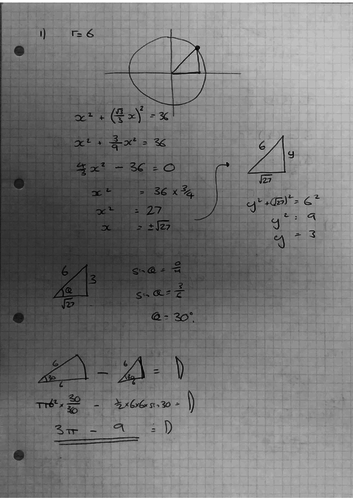 1) r=6
x² + (√3/3 x)² = 36
x² + 3/9 x² = 36
4/3 x² - 36 = 0
x² = 36 × 3/4
x² = 27
x = ±√27
6 y √27
y² + (√27)² = 6²
y² = 9
y = 3
6 3 Q √27
sin Q = o/H
sin Q = 3/6
Q = 30°.
6 30 6 - 6 30 6 = D
π6² × 30/30 - 1/2 × 6 × 6 × sin 30 = D
3π - 9 = D